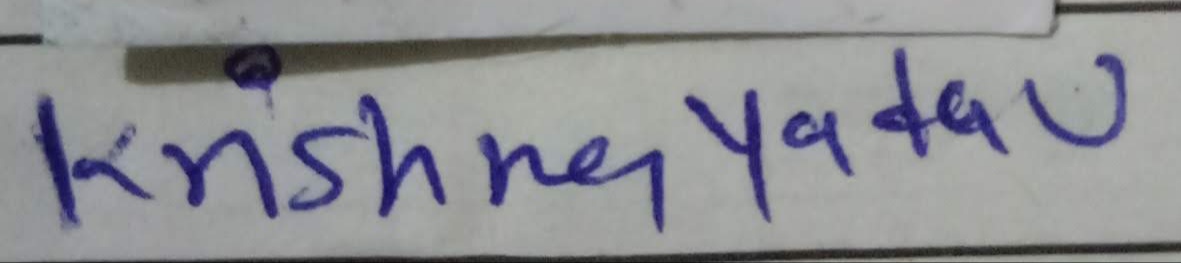 Krishna Yadav